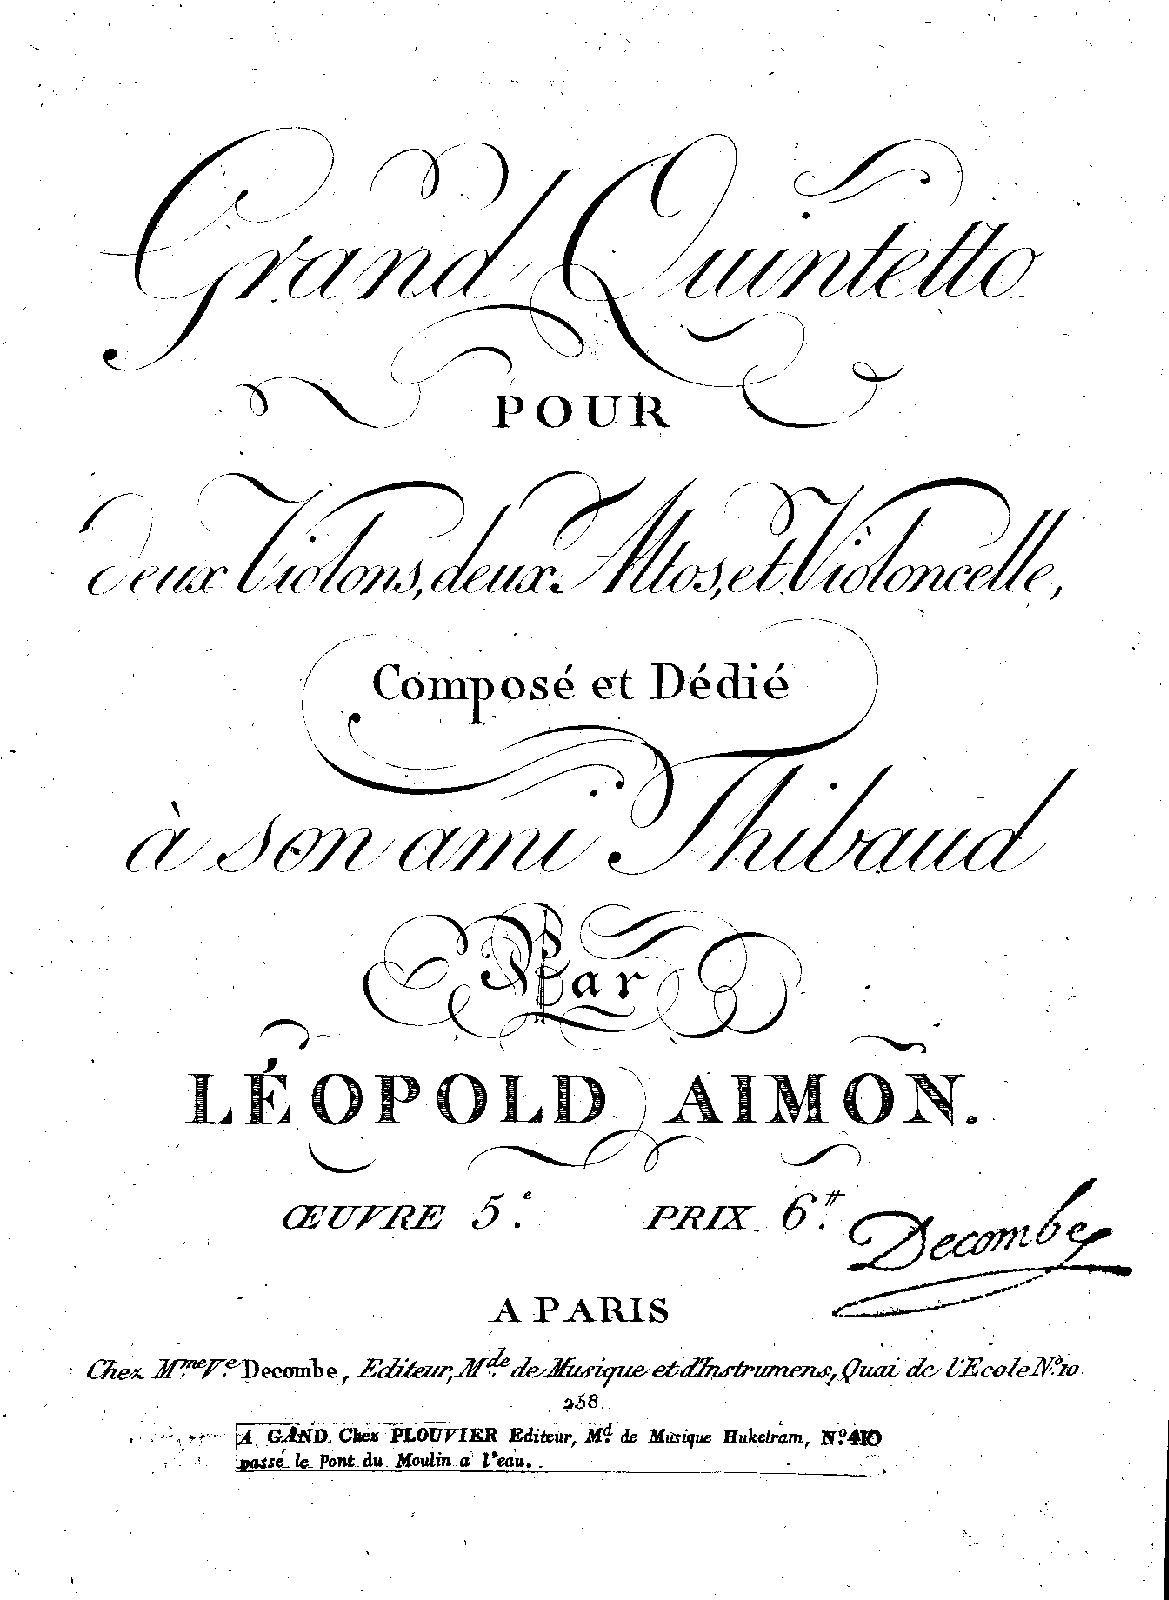 Grand Quintetto
POUR
deux Violons, deux Altos, et Violoncelle,
Composé et Dédié
à son ami Thibaud
Par
LÉOPOLD AIMON.
ŒUVRE 5.e PRIX 6.tt
Decombe
A PARIS
Chez Mme Ve. Decombe, Editeur, Mde. de Musique et d'Instrumens, Quai de l'Ecole No. 10
258
A GAND. Chez PLOUVIER Editeur, Md. de Musique Huketram, No. 410
passé le Pont du Moulin a l'eau.